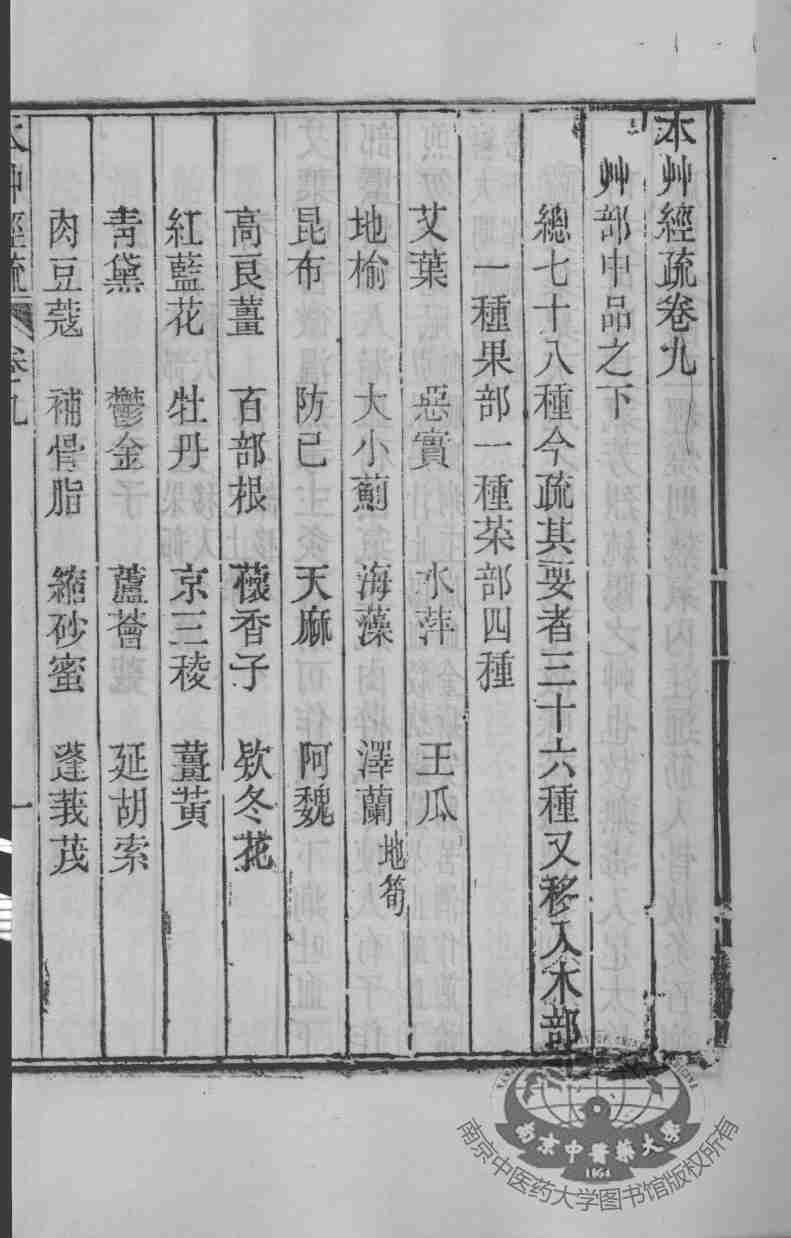 本艸經疏卷九
艸部中品之下
總七十八種今疏其要者三十六種又移入木部
一種果部一種菜部四種
艾葉 惡實 水萍 王瓜
地榆 大小薊 海藻 澤蘭地筍
昆布 防已 天麻 阿魏
高良薑 百部根 蘹香子 欵冬花
紅藍花 牡丹 京三稜 薑黃
青黛 鬱金 蘆薈 延胡索
肉豆蔻 補骨脂 縮砂蜜 蓬莪茂
本艸經疏 卷九 一
南京中醫藥大學
1954
南京中医药大学图书馆版权所有